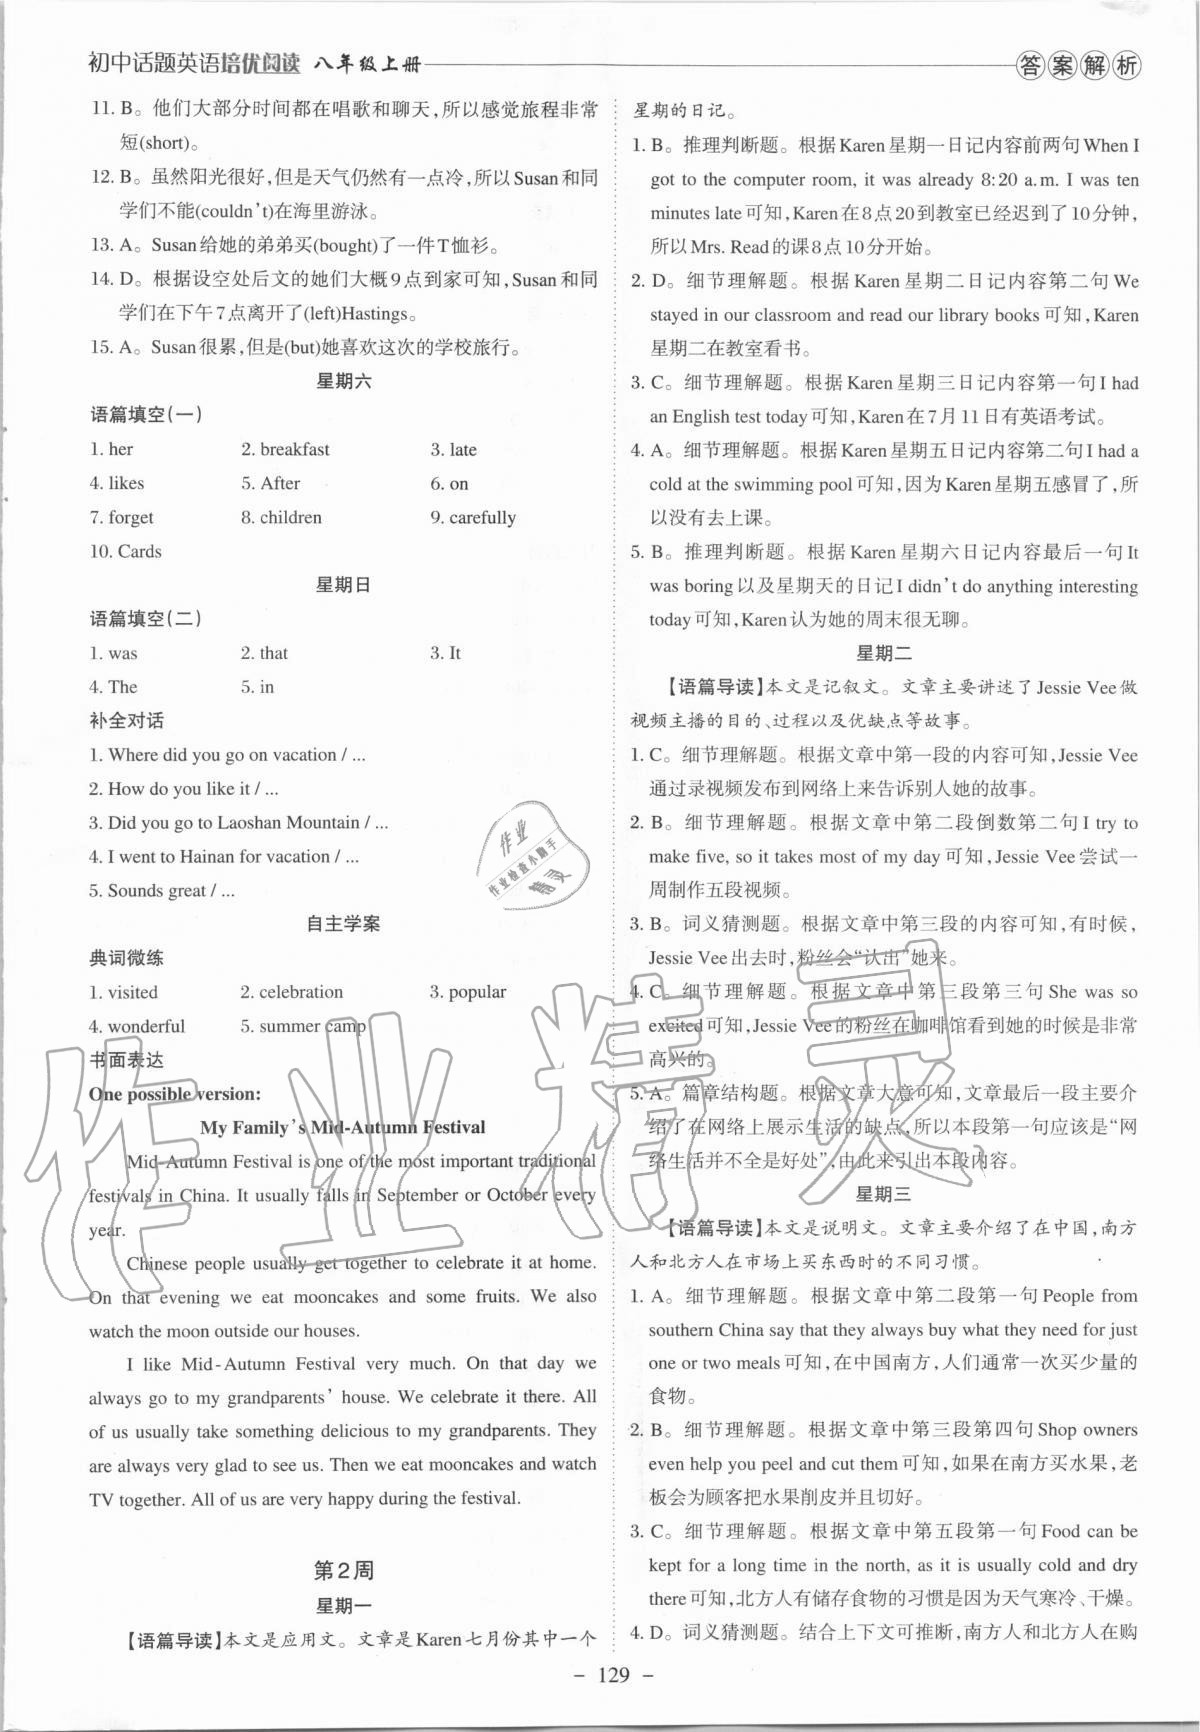 初中话题英语培优阅读 八年级上册
答案解析
11. B。他们大部分时间都在唱歌和聊天,所以感觉旅程非常
短(short)。
12. B。虽然阳光很好,但是天气仍然有一点冷,所以Susan和同
学们不能(couldn't)在海里游泳。
13. A。Susan给她的弟弟买(bought)了一件T恤衫。
14. D。根据设空处后文的她们大概9点到家可知,Susan和同
学们在下午7点离开了(left)Hastings。
15. A。Susan很累,但是(but)她喜欢这次的学校旅行。
星期六
语篇填空(一)
1. her 2. breakfast 3. late
4. likes 5. After 6. on
7. forget 8. children 9. carefully
10. Cards
星期日
语篇填空(二)
1. was 2. that 3. It
4. The 5. in
补全对话
1. Where did you go on vacation / ...
2. How do you like it / ...
3. Did you go to Laoshan Mountain / ...
4. I went to Hainan for vacation / ...
5. Sounds great / ...
自主学案
典词微练
1. visited 2. celebration 3. popular
4. wonderful 5. summer camp
书面表达
One possible version:
My Family's Mid-Autumn Festival
Mid-Autumn Festival is one of the most important traditional
festivals in China. It usually falls in September or October every
year.
Chinese people usually get together to celebrate it at home.
On that evening we eat mooncakes and some fruits. We also
watch the moon outside our houses.
I like Mid-Autumn Festival very much. On that day we
always go to my grandparents' house. We celebrate it there. All
of us usually take something delicious to my grandparents. They
are always very glad to see us. Then we eat mooncakes and watch
TV together. All of us are very happy during the festival.
第2周
星期一
【语篇导读】本文是应用文。文章是Karen七月份其中一个
星期的日记。
1. B。推理判断题。根据Karen星期一日记内容前两句When I
got to the computer room, it was already 8:20 a.m. I was ten
minutes late可知,Karen在8点20到教室已经迟到了10分钟,
所以Mrs. Read的课8点10分开始。
2. D。细节理解题。根据Karen星期二日记内容第二句We
stayed in our classroom and read our library books可知,Karen
星期二在教室看书。
3. C。细节理解题。根据Karen星期三日记内容第一句I had
an English test today可知,Karen在7月11日有英语考试。
4. A。细节理解题。根据Karen星期五日记内容第二句I had a
cold at the swimming pool可知,因为Karen星期五感冒了,所
以没有去上课。
5. B。推理判断题。根据Karen星期六日记内容最后一句It
was boring以及星期天的日记I didn't do anything interesting
today可知,Karen认为她的周末很无聊。
星期二
【语篇导读】本文是记叙文。文章主要讲述了Jessie Vee做
视频主播的目的、过程以及优缺点等故事。
1. C。细节理解题。根据文章中第一段的内容可知,Jessie Vee
通过录视频发布到网络上来告诉别人她的故事。
2. B。细节理解题。根据文章中第二段倒数第二句I try to
make five, so it takes most of my day可知,Jessie Vee尝试一
周制作五段视频。
3. B。词义猜测题。根据文章中第三段的内容可知,有时候,
Jessie Vee出去时,粉丝会“认出”她来。
4. C。细节理解题。根据文章中第三段第三句She was so
excited可知,Jessie Vee的粉丝在咖啡馆看到她的时候是非常
高兴的。
5. A。篇章结构题。根据文章大意可知,文章最后一段主要介
绍了在网络上展示生活的缺点,所以本段第一句应该是“网
络生活并不全是好处”,由此来引出本段内容。
星期三
【语篇导读】本文是说明文。文章主要介绍了在中国,南方
人和北方人在市场上买东西时的不同习惯。
1. A。细节理解题。根据文章中第二段第一句People from
southern China say that they always buy what they need for just
one or two meals可知,在中国南方,人们通常一次买少量的
食物。
2. B。细节理解题。根据文章中第三段第四句Shop owners
even help you peel and cut them可知,如果在南方买水果,老
板会为顾客把水果削皮并且切好。
3. C。细节理解题。根据文章中第五段第一句Food can be
kept for a long time in the north, as it is usually cold and dry
there可知,北方人有储存食物的习惯是因为天气寒冷、干燥。
4. D。词义猜测题。结合上下文可推断,南方人和北方人在购
- 129 -
作业
作业检查小助手
精灵
作业精灵